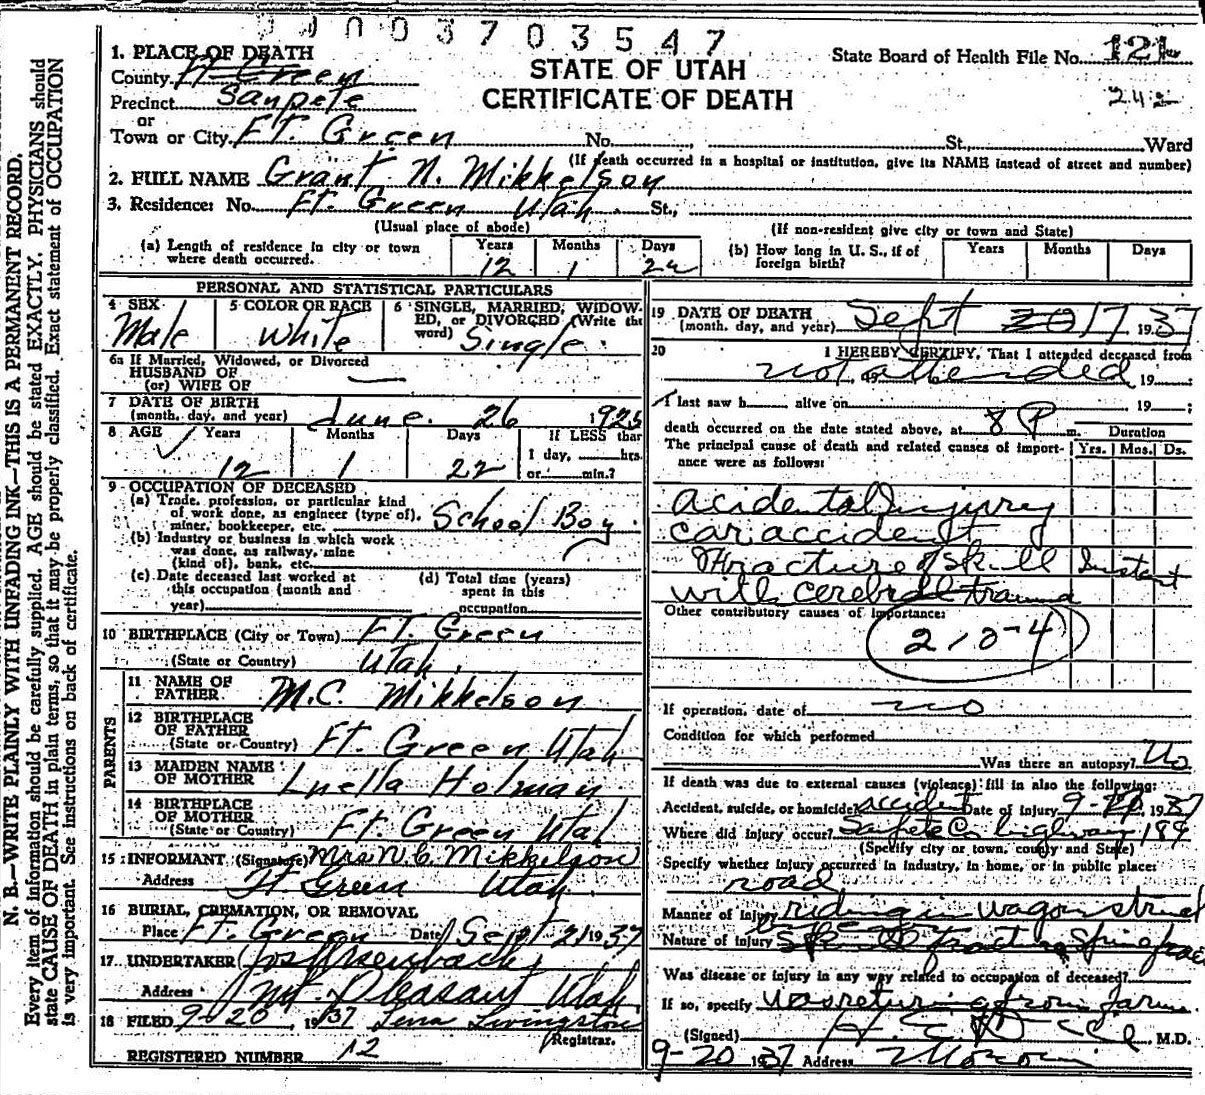 9 0 0 3 7 0 3 5 4 7
1. PLACE OF DEATH
County Ft Green
Precinct Sanpete
or
Town or City Ft. Green No. St., Ward
(If death occurred in a hospital or institution, give its NAME instead of street and number)
STATE OF UTAH
CERTIFICATE OF DEATH
State Board of Health File No. 121
242
2. FULL NAME Grant N. Mikkelson
3. Residence: No. Ft. Green Utah St.,
(Usual place of abode) (If non-resident give city or town and State)
(a) Length of residence in city or town where death occurred. Years 12 Months 1 Days 22
(b) How long in U. S., if of foreign birth? Years Months Days
PERSONAL AND STATISTICAL PARTICULARS
4 SEX Male
5 COLOR OR RACE White
6 SINGLE, MARRIED, WIDOWED, or DIVORCED (Write the word) Single
6a If Married, Widowed, or Divorced
HUSBAND OF
(or) WIFE OF —
7 DATE OF BIRTH
(month, day, and year) June. 26 1925
8 AGE Years 12 Months 1 Days 22 If LESS than 1 day, hrs. or min.?
9 OCCUPATION OF DECEASED
(a) Trade, profession, or particular kind of work done, as engineer (type of), miner, bookkeeper, etc. School Boy
(b) Industry or business in which work was done, as railway, mine (kind of), bank, etc.
(c) Date deceased last worked at this occupation (month and year)
(d) Total time (years) spent in this occupation
10 BIRTHPLACE (City or Town) Ft. Green
(State or Country) Utah.
PARENTS
11 NAME OF FATHER M.C. Mikkelson
12 BIRTHPLACE OF FATHER
(State or Country) Ft. Green Utah
13 MAIDEN NAME OF MOTHER Luella Holman
14 BIRTHPLACE OF MOTHER
(State or Country) Ft. Green Utah
15 INFORMANT (Signature) Mrs N.C. Mikkelson
Address Ft. Green Utah.
16 BURIAL, CREMATION, OR REMOVAL
Place Ft. Green Date Sept 21 1937
17 UNDERTAKER
Address Mt. Pleasant Utah
18 FILED 9-20, 1937 Lena Livingston
Registrar.
REGISTERED NUMBER 12
19 DATE OF DEATH
(month, day, and year) Sept 20 17, 1937
20 I HEREBY CERTIFY, That I attended deceased from
not attended, 19
I last saw h alive on 19 ;
death occurred on the date stated above, at 8 P m. Duration
The principal cause of death and related causes of importance were as follows: Yrs. Mos. Ds.
acidental Injury
car accident
Fracture of Skull Instant
with cerebral trauma
Other contributory causes of importance:
210-4
If operation, date of no
Condition for which performed
Was there an autopsy? No
If death was due to external causes (violence) fill in also the following:
Accident, suicide, or homicide? accident Date of injury 9- 1937
Where did injury occur? Sanpete Co highway 189
(Specify city or town, county and State)
Specify whether injury occurred in industry, in home, or in public place:
road
Manner of Injury riding in wagon struck
Nature of injury Skull fracture
Was disease or injury in any way related to occupation of deceased?
If so, specify was returning from farm
(Signed) M.D.
9-20 1937 Address Moroni
N. B.—WRITE PLAINLY WITH UNFADING INK—THIS IS A PERMANENT RECORD.
Every item of information should be carefully supplied. AGE should be stated EXACTLY. PHYSICIANS should
state CAUSE OF DEATH in plain terms, so that it may be properly classified. Exact statement of OCCUPATION
is very important. See instructions on back of certificate.